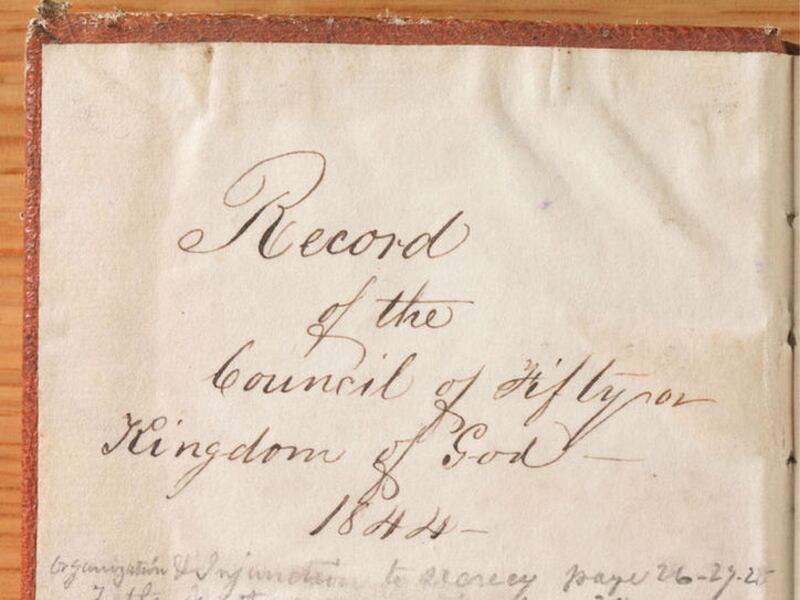 Record
of the
Council of Fifty or
Kingdom of God —
1844 —
Organization & Injunction to secrecy page 26-27-28